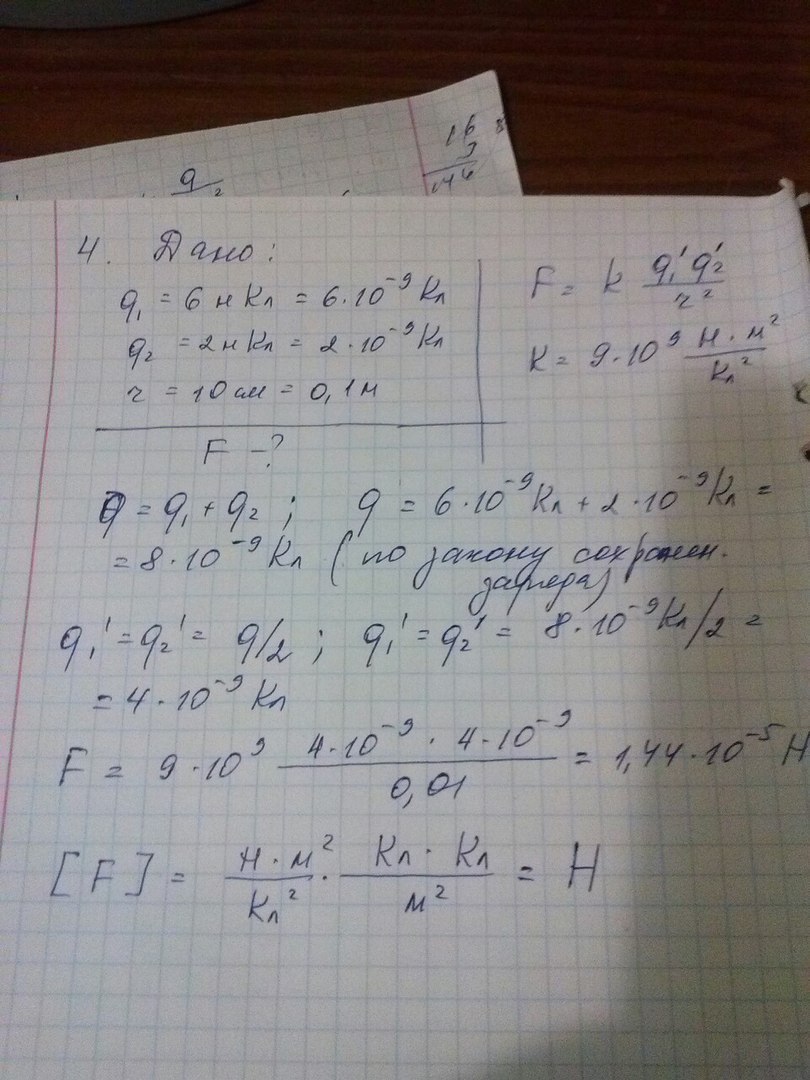 q/2
16
9
144
4. Дано:
q₁ = 6 нКл = 6·10⁻⁹ Кл
q₂ = 2 нКл = 2·10⁻⁹ Кл
r = 10 см = 0,1 м
F - ?
F = k q₁'q₂'/r²
k = 9·10⁹ Н·м²/Кл²
q = q₁ + q₂ ; q = 6·10⁻⁹ Кл + 2·10⁻⁹ Кл =
= 8·10⁻⁹ Кл (по закону сохранен.
заряда)
q₁' = q₂' = q/2 ; q₁' = q₂' = 8·10⁻⁹ Кл/2 =
= 4·10⁻⁹ Кл
F = 9·10⁹ 4·10⁻⁹ · 4·10⁻⁹/0,01 = 1,44·10⁻⁵ Н
[F] = Н·м²/Кл² · Кл·Кл/м² = Н